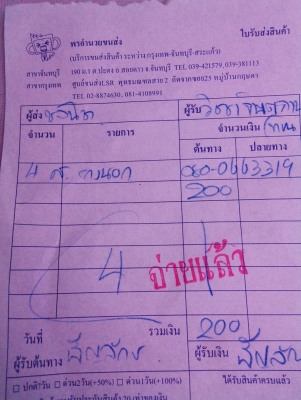 พรอำนวยขนส่ง
ใบรับส่งสินค้า
(บริการขนส่งสินค้า ระหว่าง กรุงเทพ-จันทบุรี-สระแก้ว)
สาขาจันทบุรี 190 ม.1 ต.ปะตง อ.สอยดาว จ.จันทบุรี TEL 039-421579, 039-381113
สาขากรุงเทพ ศูนย์ขนส่งLSR พุทธมณฑลสาย 2
TEL 02-8874630, 081-4108991
ผู้ส่ง
ผู้รับ
จำนวน รายการ จำนวนเงิน
ต้นทาง ปลายทาง
4 080-0663319
200
4
จ่ายแล้ว
วันที่ รวมเงิน 200
ผู้รับต้นทาง ผู้รับเงิน
ปกติ7วัน ด่วน2วัน(+50%) ด่วน1วัน(+100%) ได้รับสินค้าครบแล้ว